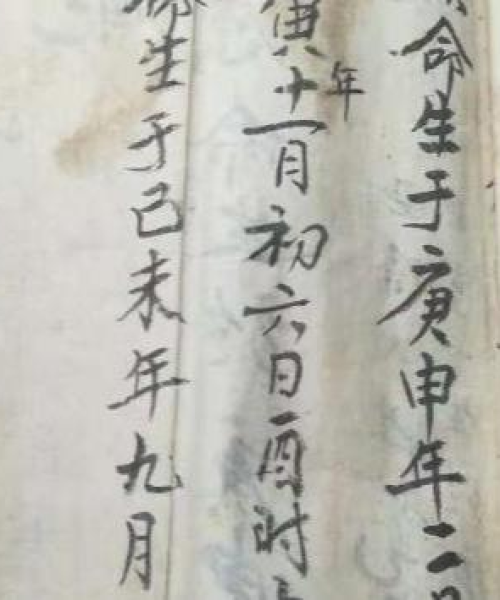 命生于庚申年二
寅年十一月初六日酉时
生于己未年九月